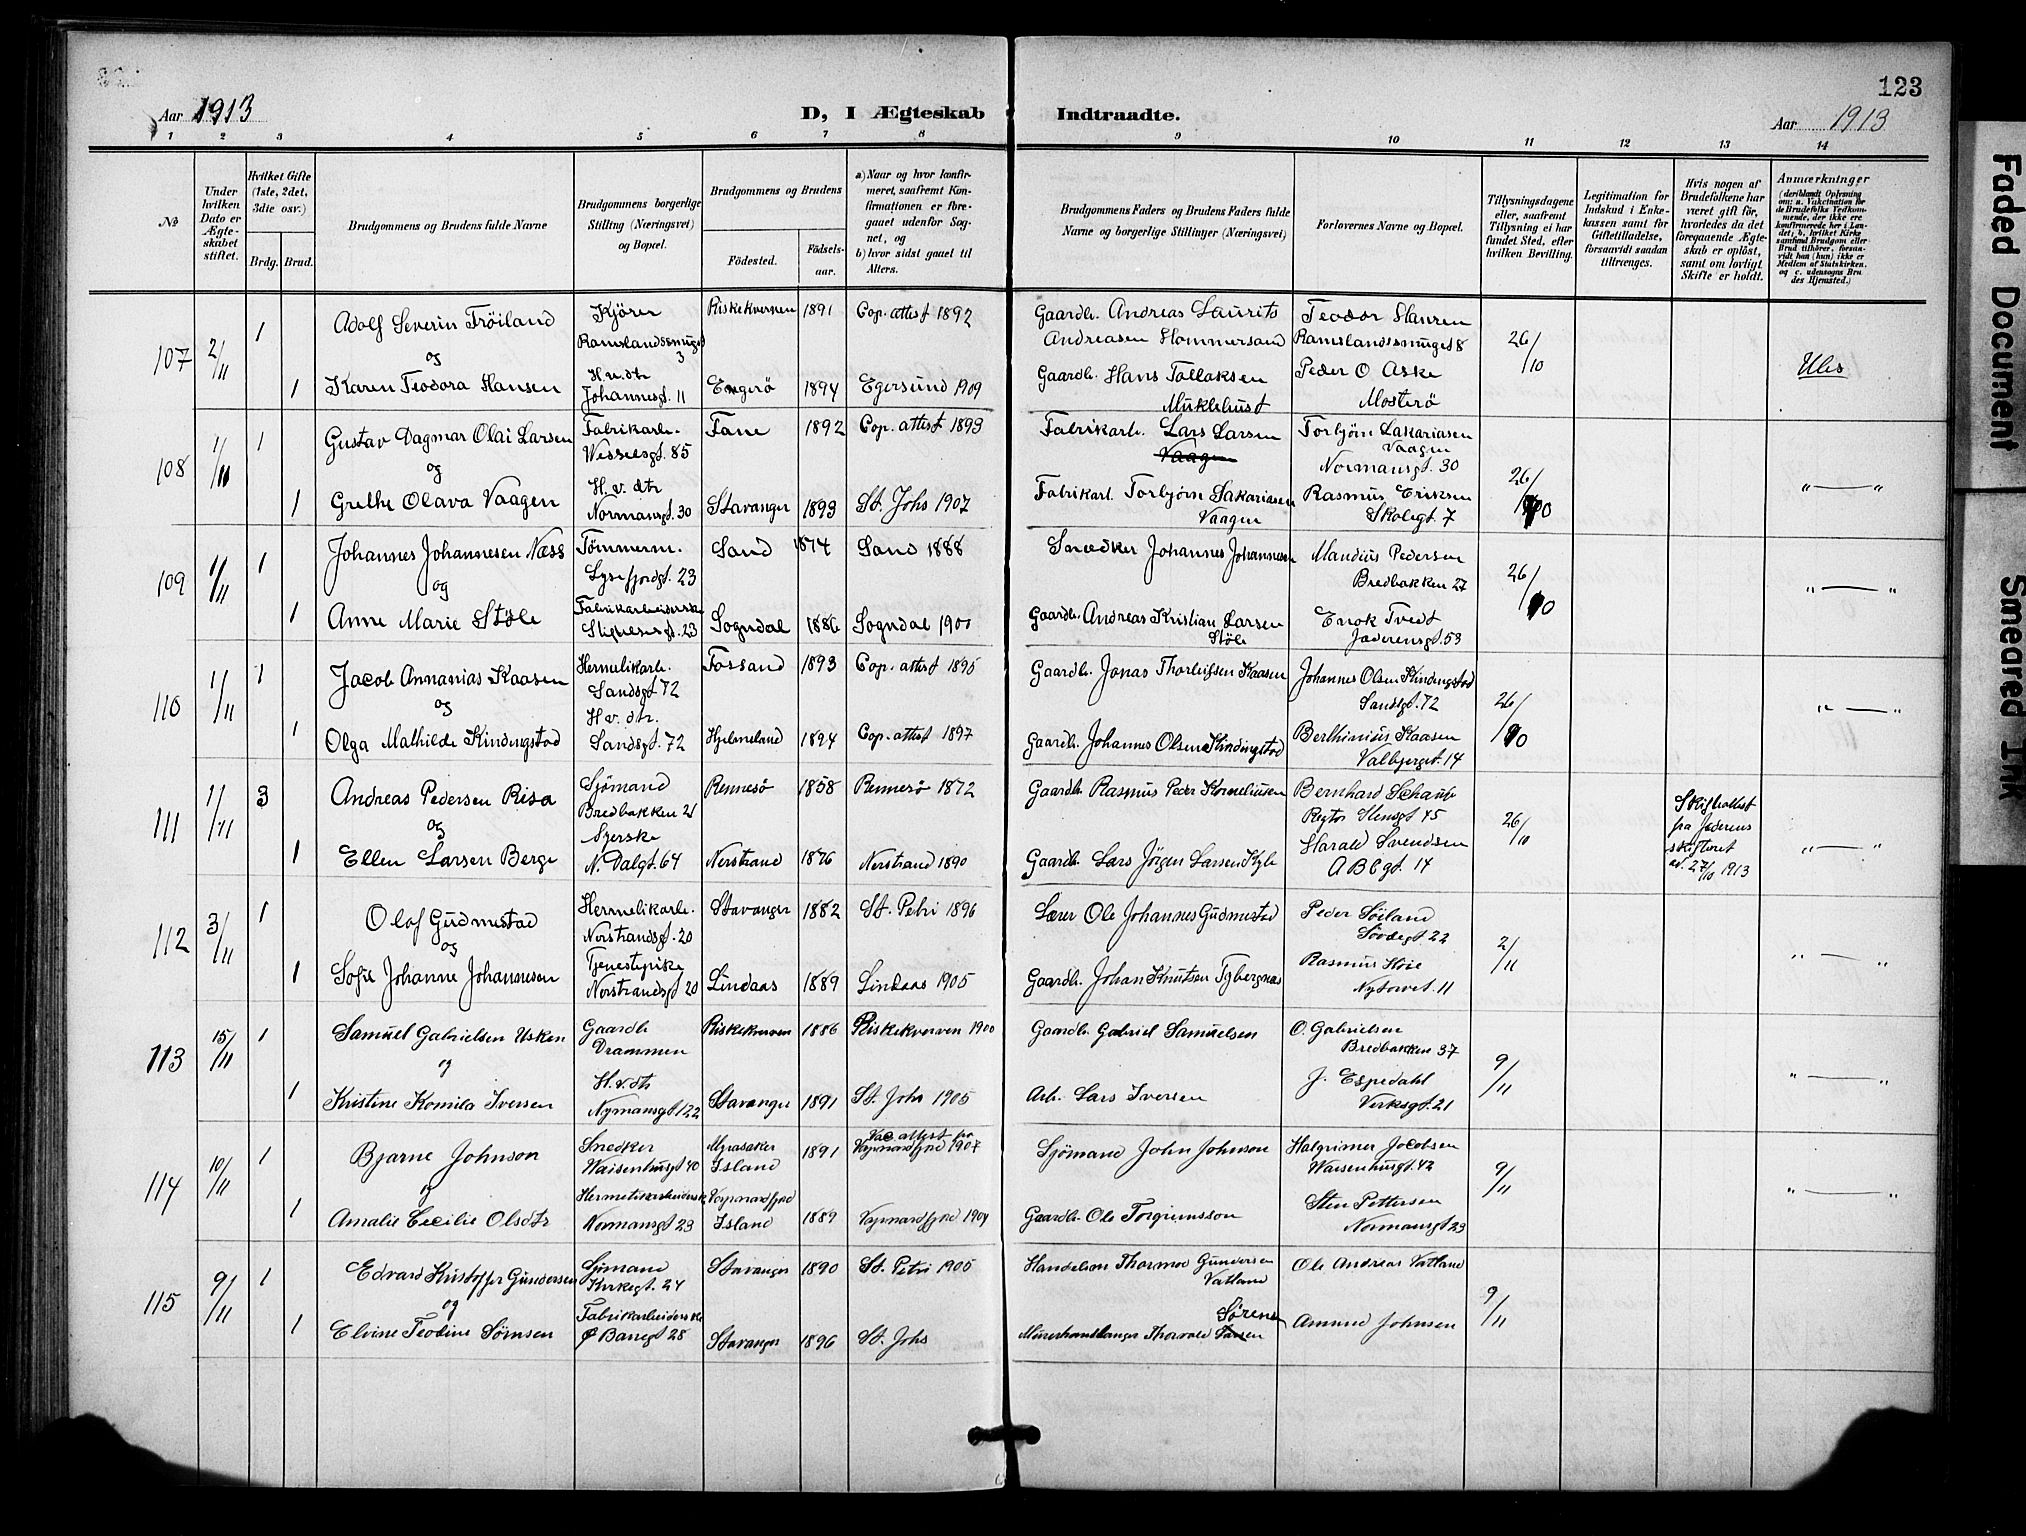 123
Aar 1913
D, I Ægteskab Indtraadte.
Aar 1913
1 2 3 4 5 6 7 8 9 10 11 12 13 14
No
Under hvilken Dato er Ægteskabet stiftet.
Hvilket Gifte (1ste, 2det, 3die osv.)
Brdg. Brud.
Brudgommens og Brudens fulde Navne
Brudgommens borgerlige Stilling (Næringsvei) og Bopæl.
Brudgommens og Brudens
Födested.
Födselsaar.
a) Naar og hvor konfirmeret, saafremt Konfirmationen er foregaaet udenfor Sognet, og
b) hvor sidst gaaet til Alters.
Brudgommens Faders og Brudens Faders fulde Navne og borgerlige Stillinger (Næringsvei)
Forlovernes Navne og Bopæl.
Tillysningsdagene eller, saafremt Tillysning ei har fundet Sted, efter hvilken Bevilling.
Legitimation for Indskud i Enkekassen samt for Giftetilladelse, forsaavidt saadan tiltrænges.
Hvis nogen af Brudefolkene har været gift før, hvorledes da det foregaaende Ægteskab er oplöst, samt om lovligt Skifte er holdt.
Anmærkninger
(deriblandt Oplysning om: a. Vakcination for de Brudefolks Vedkommende, der ikke ere konfirmerede her i Landet; b. hvilket Kirkesamfund Brudgom eller Brud tilhörer, forsaavidt han (hun) ikke er Medlem af Statskirken. og c. udensogns Brudes Hjemsted.)
107 2/11 1 Adolf Severin Tröiland Kjörer Ramslandssmuget 3 Riskekverven 1891 Cop. attest 1892 Gaardb. Andreas Laurits Andreasen Hommersand Teodor Hansen Ramslandssmuget 8 26/10 Ules
og
1 Karen Teodora Hansen H. v. dtr Johannesgt. 11 Engerö 1894 Egersund 1909 Gaardb. Hans Tollaksen Muklehust Peder O Aske Mosterö
108 1/11 1 Gustav Dagmar Olai Larsen Fabrikarb. Wesselsgt. 85 Fane 1892 Cop. attest 1893 Fabrikarb. Lars Larsen Vaagen Torbjörn Sakariasen Vaagen Normansgt. 30 26/10 " — "
og
1 Grethe Olava Vaagen H. v. dtr Normansgt. 30 Stavanger 1893 St. Johs 1907 Fabrikarb. Torbjörn Sakariasen Vaagen Rasmus Eriksen Skolegt. 7
109 1/11 1 Johannes Johannesen Næss Tömmerm. Lysefjordgt. 23 Sand 1874 Sand 1888 Snedker Johannes Johannesen Mandius Pedersen Bredbakken 27 26/10 " — "
og
1 Anne Marie Stöle Fabrikarbeiderske 23 Sogndal 1886 Sogndal 1900 Gaardb. Andreas Kristian Larsen Stöle Enok Tvedt Jæderensgt. 53
110 1/11 1 Jacob Annanias Kaasen Hermetikarb. Sandsgt 72 Fossand 1893 Cop. attest 1895 Gaardb. Jonas Thorleifsen Kaasen Johannes Olsen Kindingstad Sandsgt. 72 26/10 " — "
og
1 Olga Mathilde Kindingstad H. v. dtr. Sandsgt. 72 Hjelmeland 1894 Cop. attest 1897 Gaardb. Johannes Olsen Kindingstad Berthinius Kaasen Valbjerggt. 14
111 1/11 3 Andreas Pedersen Risa Sjömand Bredbakken 21 Rennesö 1858 Rennesö 1872 Gaardb. Rasmus Peder Korneliusen Bernhard Schanke 45 26/10 Skifteattest fra Jederens skifteret ad. 27/10 1913 " — "
og
1 Ellen Larsen Berge Syerske N. Dalgt. 64 Nerstrand 1876 Nerstrand 1890 Gaardb. Lars Jörgen Larsen Harald Svendsen A B C gt. 14
112 3/11 1 Olaf Gudmestad Hermetikarb. Nerstrandsgt. 20 Stavanger 1882 St. Petri 1896 Lærer Ole Johannes Gudmestad Peder Söiland Lövdegt 22 2/11 " — "
og
1 Sofie Johanne Johannesen Tjenestepike Nerstrandsgt 20 Lindaas 1889 Lindaas 1905 Gaardb. Johan Knutsen Rasmus Höie Nytorvet. 11
113 15/11 1 Samuel Gabrielsen Usken Gaardb Drammen Riskekverven 1886 Riskekverven 1900 Gaardb. Gabriel Samuelsen O. Gabrielsen Bredbakken 37 9/11 " — "
og
1 Kristine Komila Iversen H. v. dtr Nymansgt. 122 Stavanger 1891 St. Johs 1905 Arb. Lars Iversen J. Espedahl Verksgt. 21
114 10/11 1 Bjarne Johnson Snedker Waisenhusgt 40 Island 1891 Vac. attest fra Vopnandfjord 1907 Sjömand John Johnson Halgrimer Jacobsen Waisenhusgt. 42 9/11 " — "
og
1 Amalie Cecilie Olsdtr Hermetikarbeiderske Normansgt 23 Vopnandfjord Island 1889 Vopnandfjord 1904 Gaardb. Ole Torgrimsson Sten Pettersen Normansgt 23
115 9/11 1 Edvard Kristoffer Gundersen Sjömand Kirkegt. 24 Stavanger 1890 St. Petri 1905 Handelsm Thormod Gundersen Vatland Ole Andreas Vatland 9/11
og
1 Elvine Teodine Sörnsen Fabrikarbeiderske Ø Banegt 28 Stavanger 1896 St. Johs Murerhandlanger Thorvald Sörensen Amund Johnsen
Faded Document
Smeared Ink